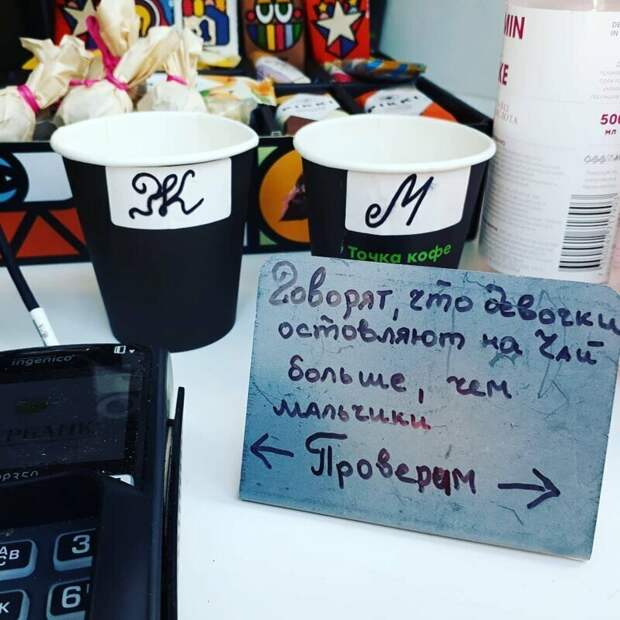 Ж
М
Точка кофе
Говорят, что девочки
оставляют на чай
больше, чем
мальчики
← Проверим →
ingenico
MIN
KE
500
мл
3
6